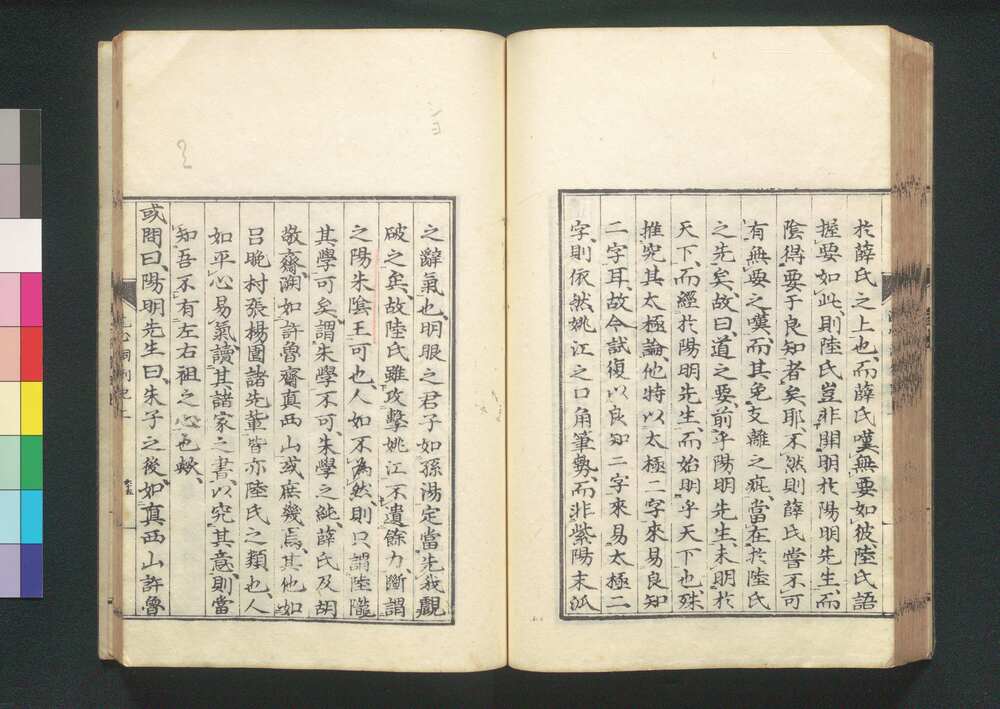 於薛氏之上也、而薛氏嘆無要如彼、陸氏語
握要如此、則陸氏豈非開明於陽明先生、而
陰得要于良知者矣耶、不然則薛氏嘗不可
有無要之嘆、而其免支離之疵、當在於陸氏
之先矣、故曰、道之要、前乎陽明先生、未明於
天下、而經於陽明先生、而始明乎天下也、殊
推究其太極論、他特以太極二字來易良知
二字耳、故今試復以良知二字來易太極二
字、則依然姚江之口角筆勢、而非紫陽末派
之辭氣也、明眼之君子如孫湯定當先我觀
破之矣、故陸氏雖攻擊姚江不遺餘力、斷謂
之陽朱陰王可也、人如不為然、則只謂陸隴
其學可矣、謂朱學不可、朱學之純、薛氏及胡
敬齋溯如許魯齋真西山或庶幾焉、其他如
呂晚村張楊園諸先輩皆亦陸氏之類也、人
如平心易氣讀其諸家之書、以究其意、則當
知吾不有左右袒之心也歟、
或問曰、陽明先生曰、朱子之後、如真西山許魯